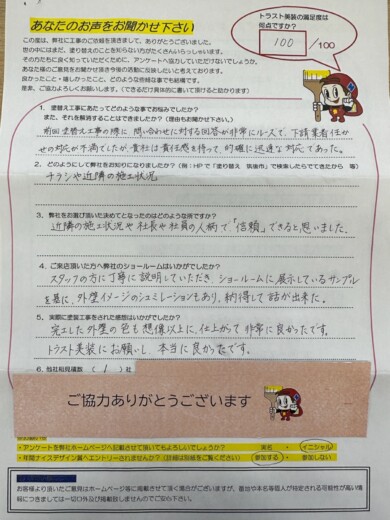 あなたのお声をお聞かせ下さい
トラスト美装の満足度は
何点ですか？
100 /100
この度は、弊社に工事のご依頼を頂きまして、ありがとうございました。
世の中にはまだ、塗り替えのことを知らない方がたくさんいらっしゃいます。
その方たちに良く知っていただくために、アンケートへ協力していただけないでしょうか。
あなた様のご意見をお聞かせ頂き今後の活動に反映したいと考えております。
良かったこと・嬉しかったこと、どのような些細な事でも結構です。
是非、ご協力よろしくお願いします。（できるだけ具体的に書いて頂けると助かります）
1. 塗替え工事にあたってどのような事でお悩みでしたか？
また、それを解消することはできましたか？（理由もお聞かせ下さい。）
前回塗替え工事の際に、問い合わせに対する回答が非常にルーズで、下請業者任か
せの対応が不満でしたが、貴社は責任感を持って、的確に迅速な対応であった。
2. どのようにして弊社をお知りになりましたか？（例：HPで「塗り替え 筑後市」で検索したらでてきたから 等）
チラシや近隣の施工状況
3. 弊社をお選び頂いた決めてとなったのはどのような所ですか？
近隣の施工状況や社長や社員の人柄で、「信頼」できると思いました。
4. ご来店頂いた方へ弊社のショールームはいかがでしたか？
スタッフの方に丁寧に説明していただき、ショールームに展示しているサンプル
を基に、外壁イメージのシュミレーションもあり、納得して話が出来た。
5. 実際に塗装工事をされた感想はいかがでしたか？
完工した外壁の色も想像以上に、仕上がって非常に良かったです。
トラスト美装にお願いし、本当に良かったです。
6. 他社相見積数 ( 1 ) 社
ご協力ありがとうございます
・アンケートを弊社ホームページへ記載させて頂いてもよろしいでしょうか？ 実名 ・ イニシャル
・年間ナイスデザイン賞へエントリーされませんか？（詳細は別紙をご覧ください） 参加する ・ 参加しない
お客様より頂いたご意見はホームページ等に掲載させて頂く場合がございますが、番地や本名等個人が特定される可能性が高い情
報につきましては一切口外及び掲載致しませんのでご安心下さい。